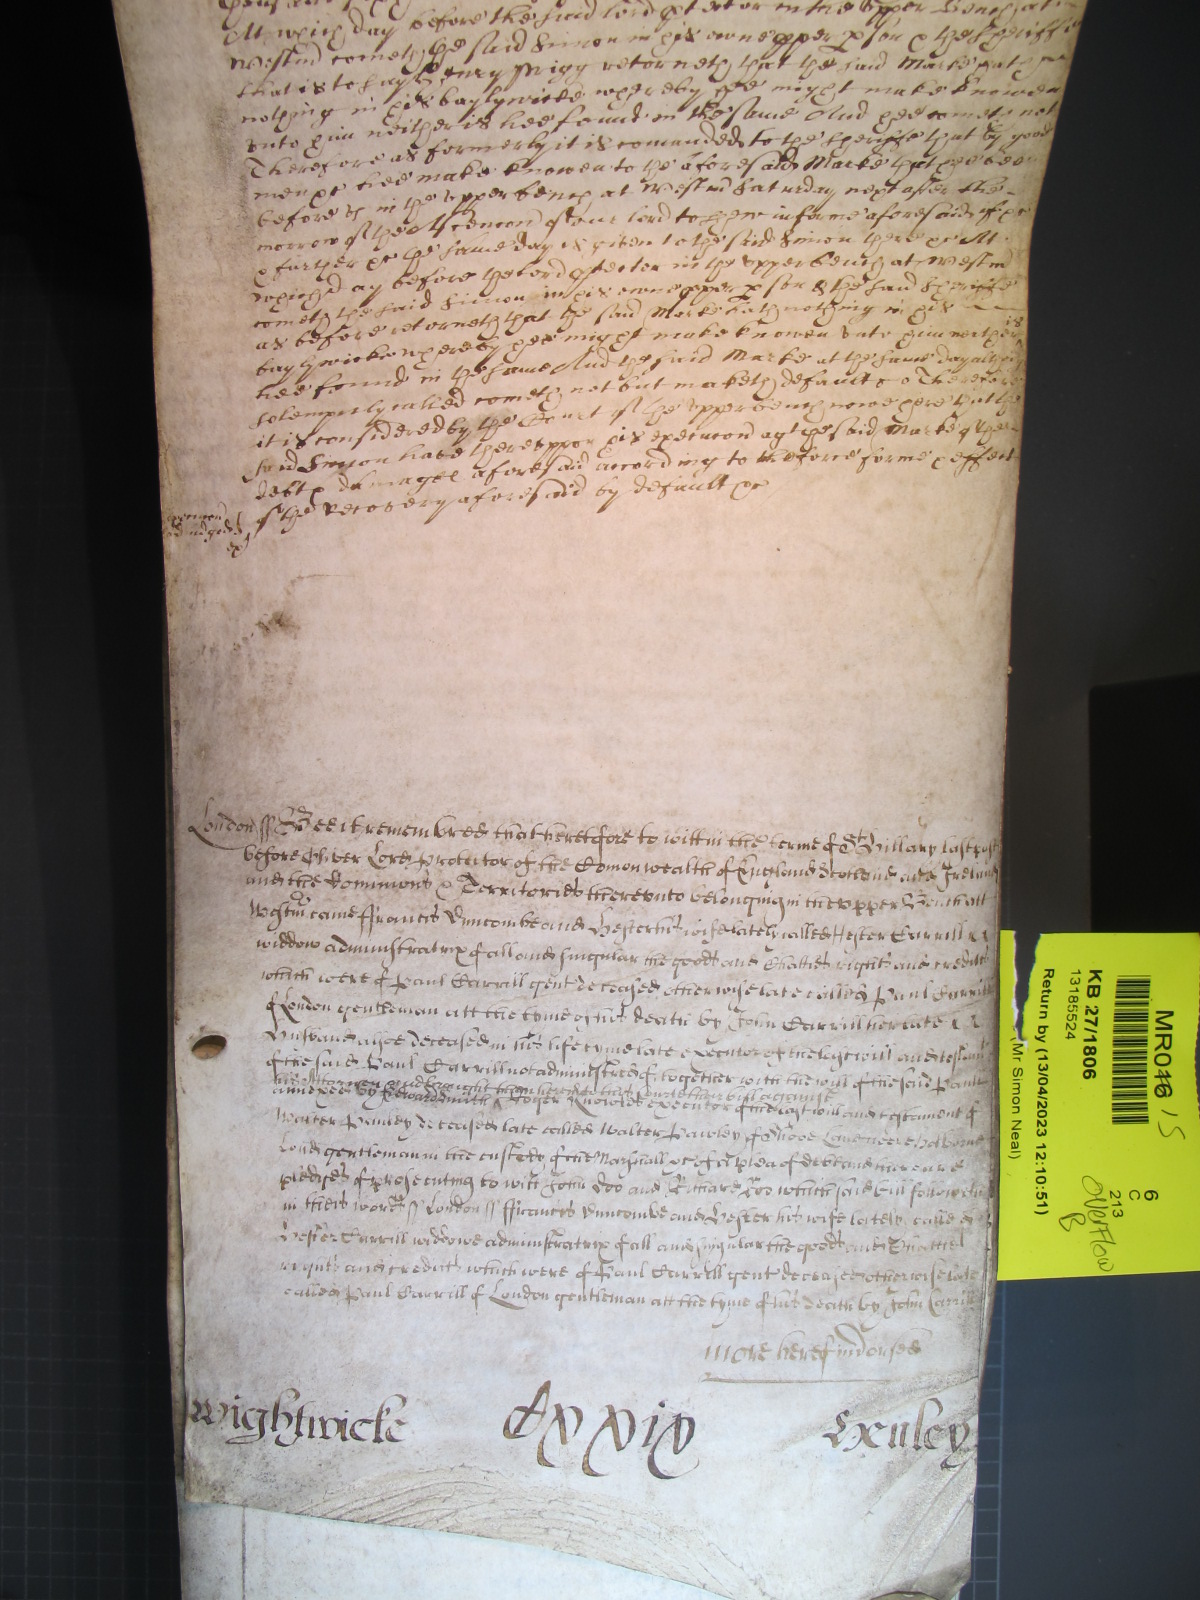 At which day before the said lord protector in the upper Bench at
Westm cometh the said Simon in his owne pper pson & the Sheriffe
that is to say Henry Wigg retorneth that the said Marke hath
nothing in his baylywicke whereby hee might make knowen
unto him neither is hee found in the same And hee cometh not
Therefore as formerly it is comanded to the Sheriffe that by good
men &c hee make knowen to the aforesaid Marke that hee bee
before &c in the upper bench at Westm Saturday next after the
morrow of the Ascencon of our lord to shew in forme aforesaid if &c
& further &c the same day is given to the said Simon there &c At
which day before the lord ptector in the upper bench at Westm
cometh the said Simon in his owne pper pson & the said Sheriffe
as before retorneth that the said Marke hath nothing in his
baylywicke whereby hee might make knowen unto him neither is
hee found in the same And the said Marke at the same day
solempnly called cometh not but maketh default &c Therefore
it is considered by the Court of the upper bench nowe here that the
said Simon have thereuppon his execucon agt the said Marke of the
debt & damages aforesaid according to the force forme & effect
of the recovery aforesaid by default &c
London ss Bee it remembred that heretofore to witt in the terme of St Hillary last past
before Oliver Lord Protector of the Comonwealth of England Scotland and Ireland
and the Dominions & Territories thereunto belonging in the upper Bench att
Westm came Ffrancis Duncombe and Hester his wife lately called Hester Carrill
widdow administratrix of all and singular the goods and Chattles rights and credits
which were of Paul Carrill gent deceased otherwise late called Paul Carrill
of London gentleman att the tyme of his death by John Carrill her late
Husband alsoe deceased in his life tyme late executor of the last will and testamt
of the said Paul Carrill not administred together with the will of the said Paul
annexed by Edward Smith
their Attorney and brought then here into that Court their bill against
Roger Knowles executor of the last will and testament of
Walter Pawley deceased late called Walter Pawley of Shooe Lane neere Holborne
Lond gentleman in the custody of the Marshall &c of a plea of debt and there are
pledges of prosecuting to witt John Doo and Richard Roo which said bill followeth
in theis words ss London ss Ffrancis Duncombe and Hester his wife lately called
Hester Carrill widdowe administratrix of all and singular the goods and Chattles
rights and credits which were of Paul Carrill gent deceased otherwise late
called Paul Carrill of London gentleman att the tyme of his death by John Carrill
more hereof indorsed
Wightwicke
Cxxix
Exuley
MR016 / S
KB 27/1806
13185524
Return by (13/04/2023 12:10:51)
(Mr Simon Neal)
6
C
213
Overflow
B